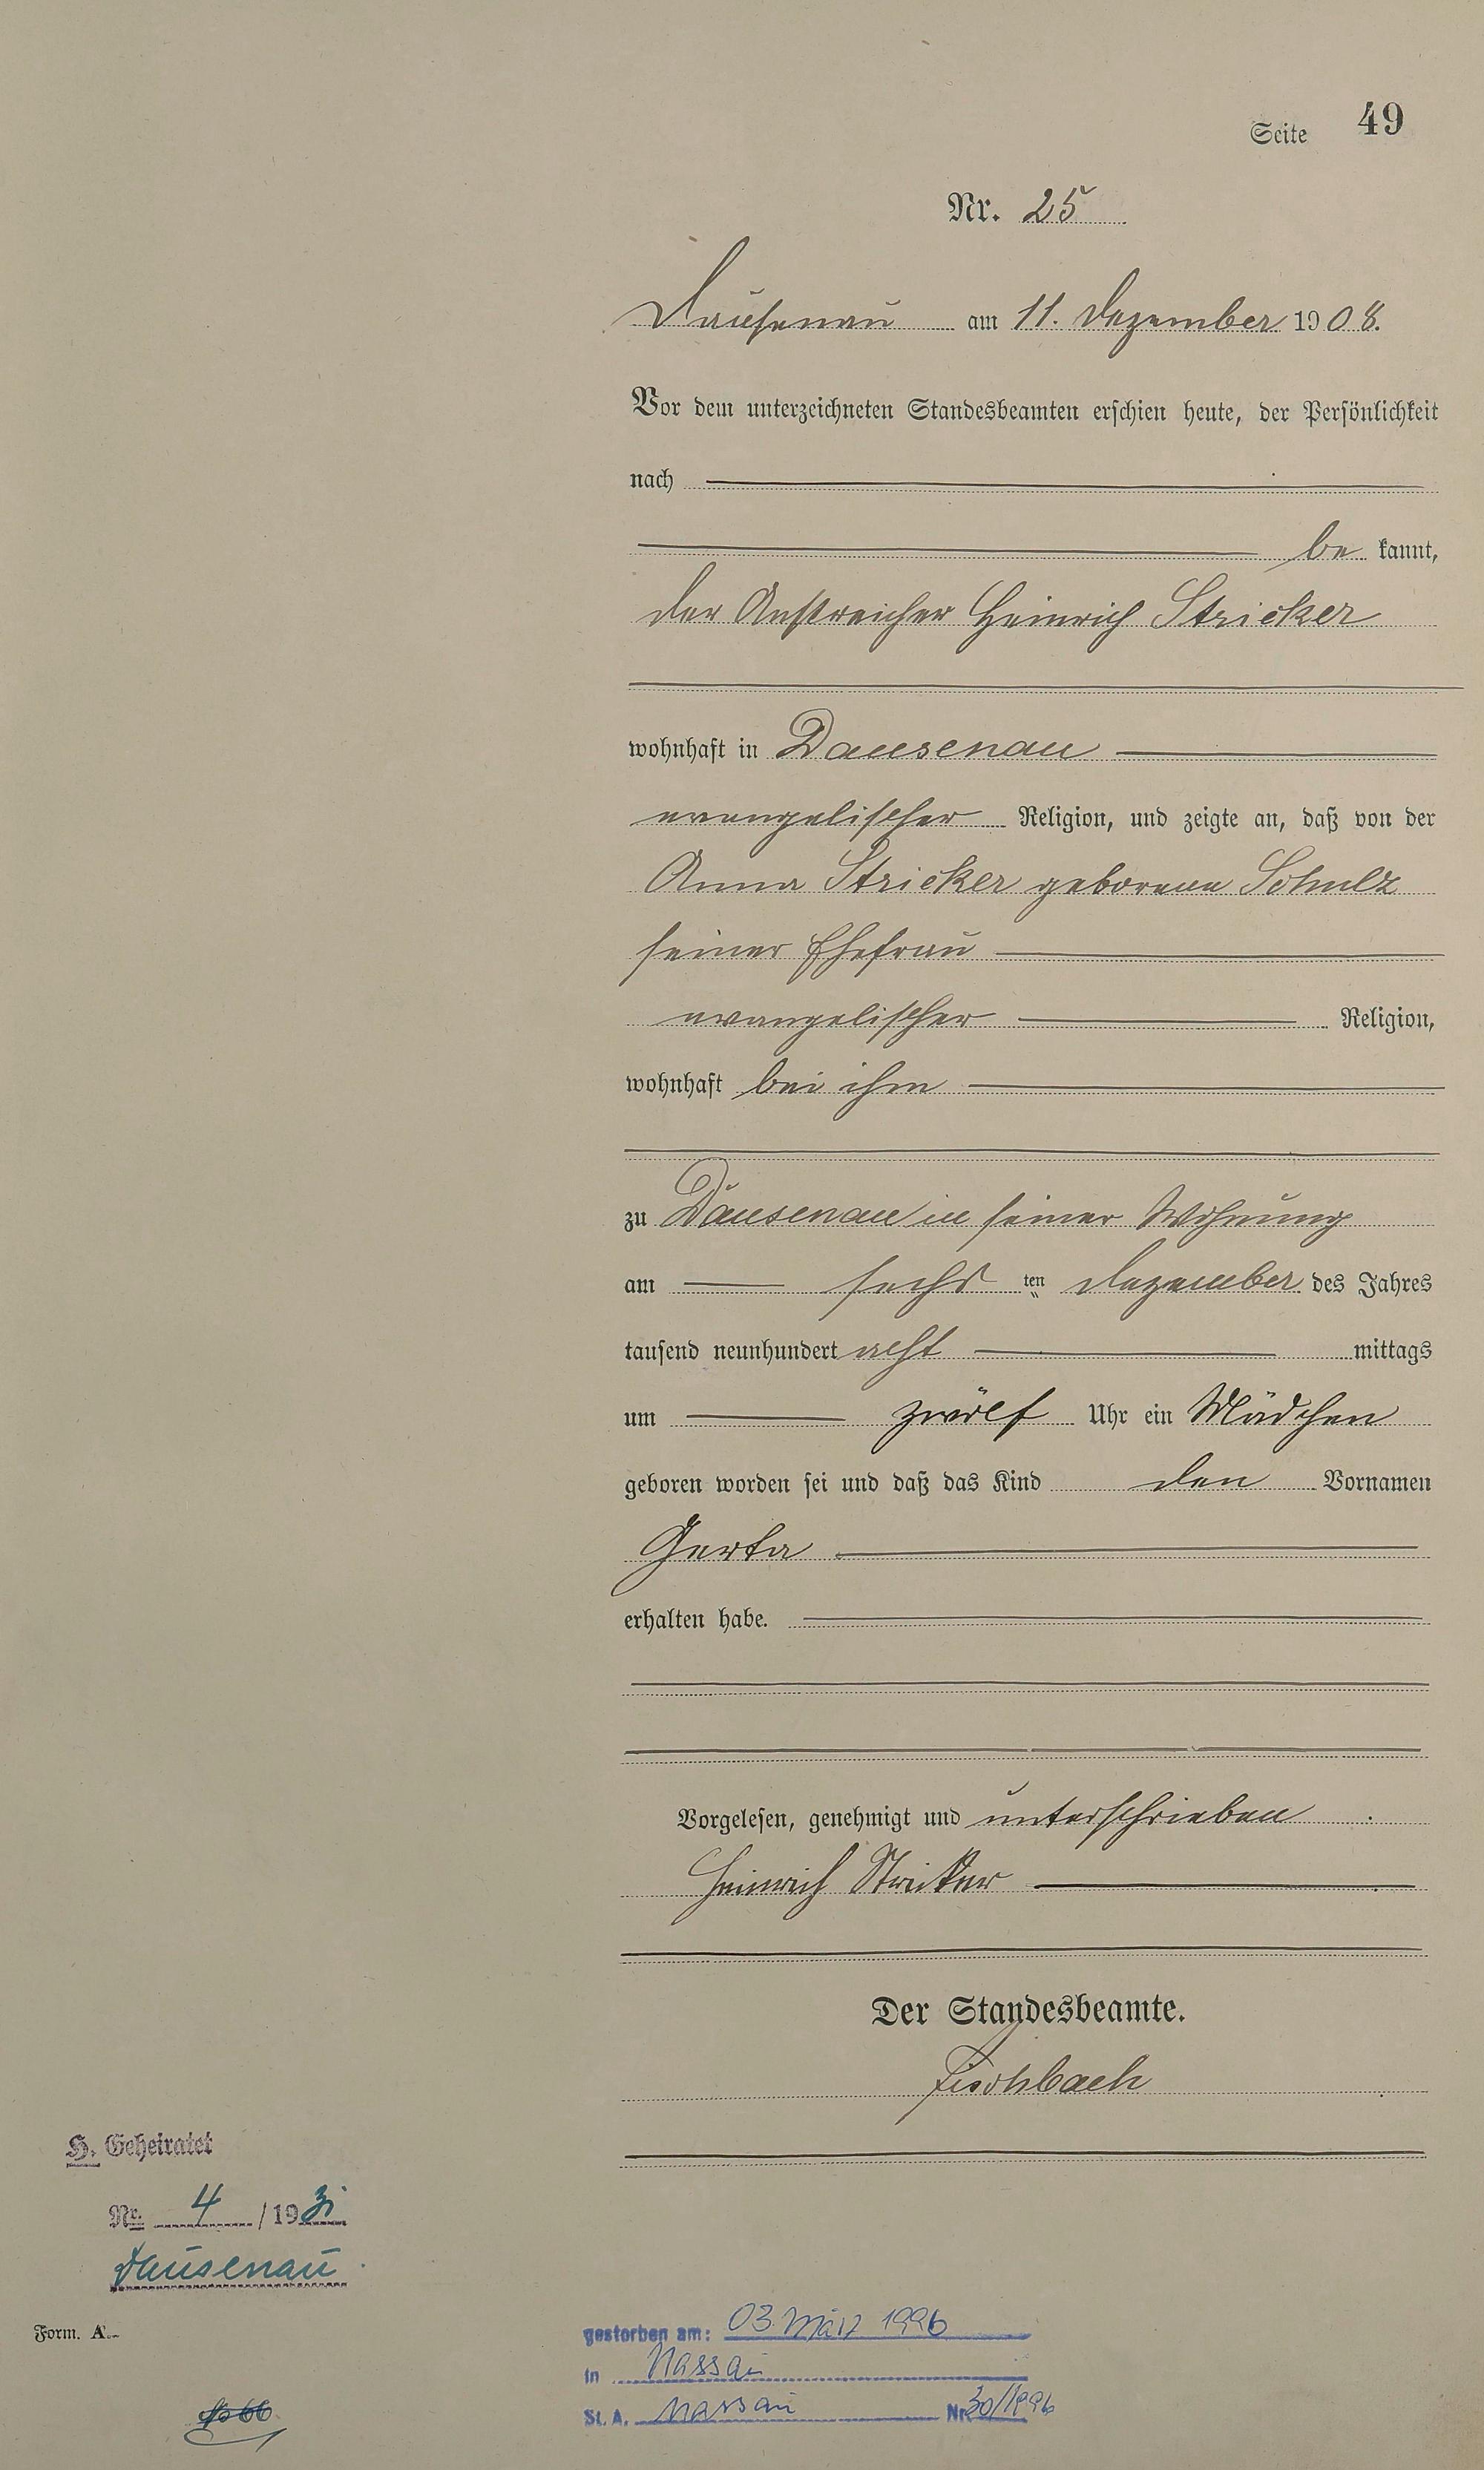 Seite 49
Nr. 25
Dausenau am 11. Dezember 1908.
Vor dem unterzeichneten Standesbeamten erschien heute, der Persönlichkeit
nach
be kannt,
der Anstreicher Heinrich Stricker
wohnhaft in Dausenau
evangelischer Religion, und zeigte an, daß von der
Anna Stricker geborene Schulz
seiner Ehefrau
evangelischer Religion,
wohnhaft bei ihm
zu Dausenau in seiner Wohnung
am sechs ten Dezember des Jahres
tausend neunhundert acht mittags
um zwölf Uhr ein Mädchen
geboren worden sei und daß das Kind den Vornamen
Gerta
erhalten habe.
Vorgelesen, genehmigt und unterschrieben
Heinrich Stricker
Der Standesbeamte.
Fischbach
H. Geheiratet
Nr. 4 / 1931
Dausenau
Form. A.
gestorben am: 03. März 1996
in Nassau
St. A. Nassau Nr. 30/1996